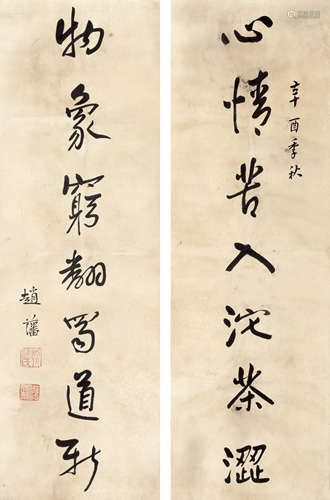 心情苦入沱茶澀
辛酉季秋
物象窮翻笱道新
趙藩